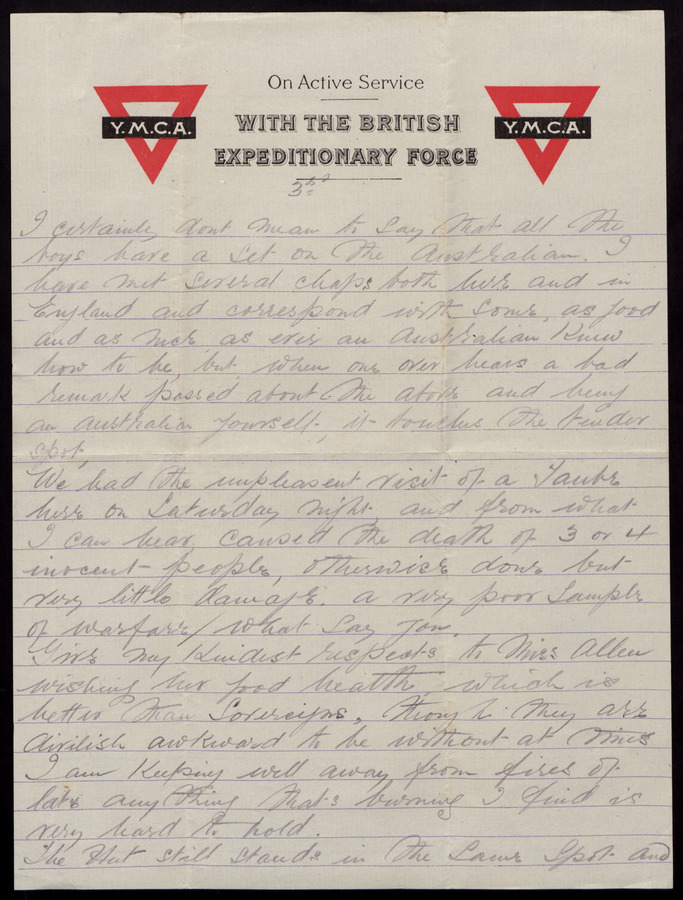 On Active Service
Y.M.C.A. WITH THE BRITISH Y.M.C.A.
EXPEDITIONARY FORCE
I certainly dont mean to say that all the
boys have a set on the Australian. I
have met several chaps both here and in
England and correspond with some, as good
and as nice as ever an Australian knew
how to be, but, when one over hears a bad
remark passed about the above and being
an Australian yourself, it touches the tender
spot,
We had the unpleasent visit of a Taube
here on Saturday night and from what
I can hear, caused the death of 3 or 4
inocent people, otherwise done but
very little damage. a very poor sample
of warfare / What say you.
Give my kindest respects to Miss Allen
wishing her good health, which is
better than Sovereigns, though they are
divilish awkward to be without at times
I am keeping well away from fires of
late any thing that's burning I find is
very hard to hold.
The Hut still stands in the same spot and